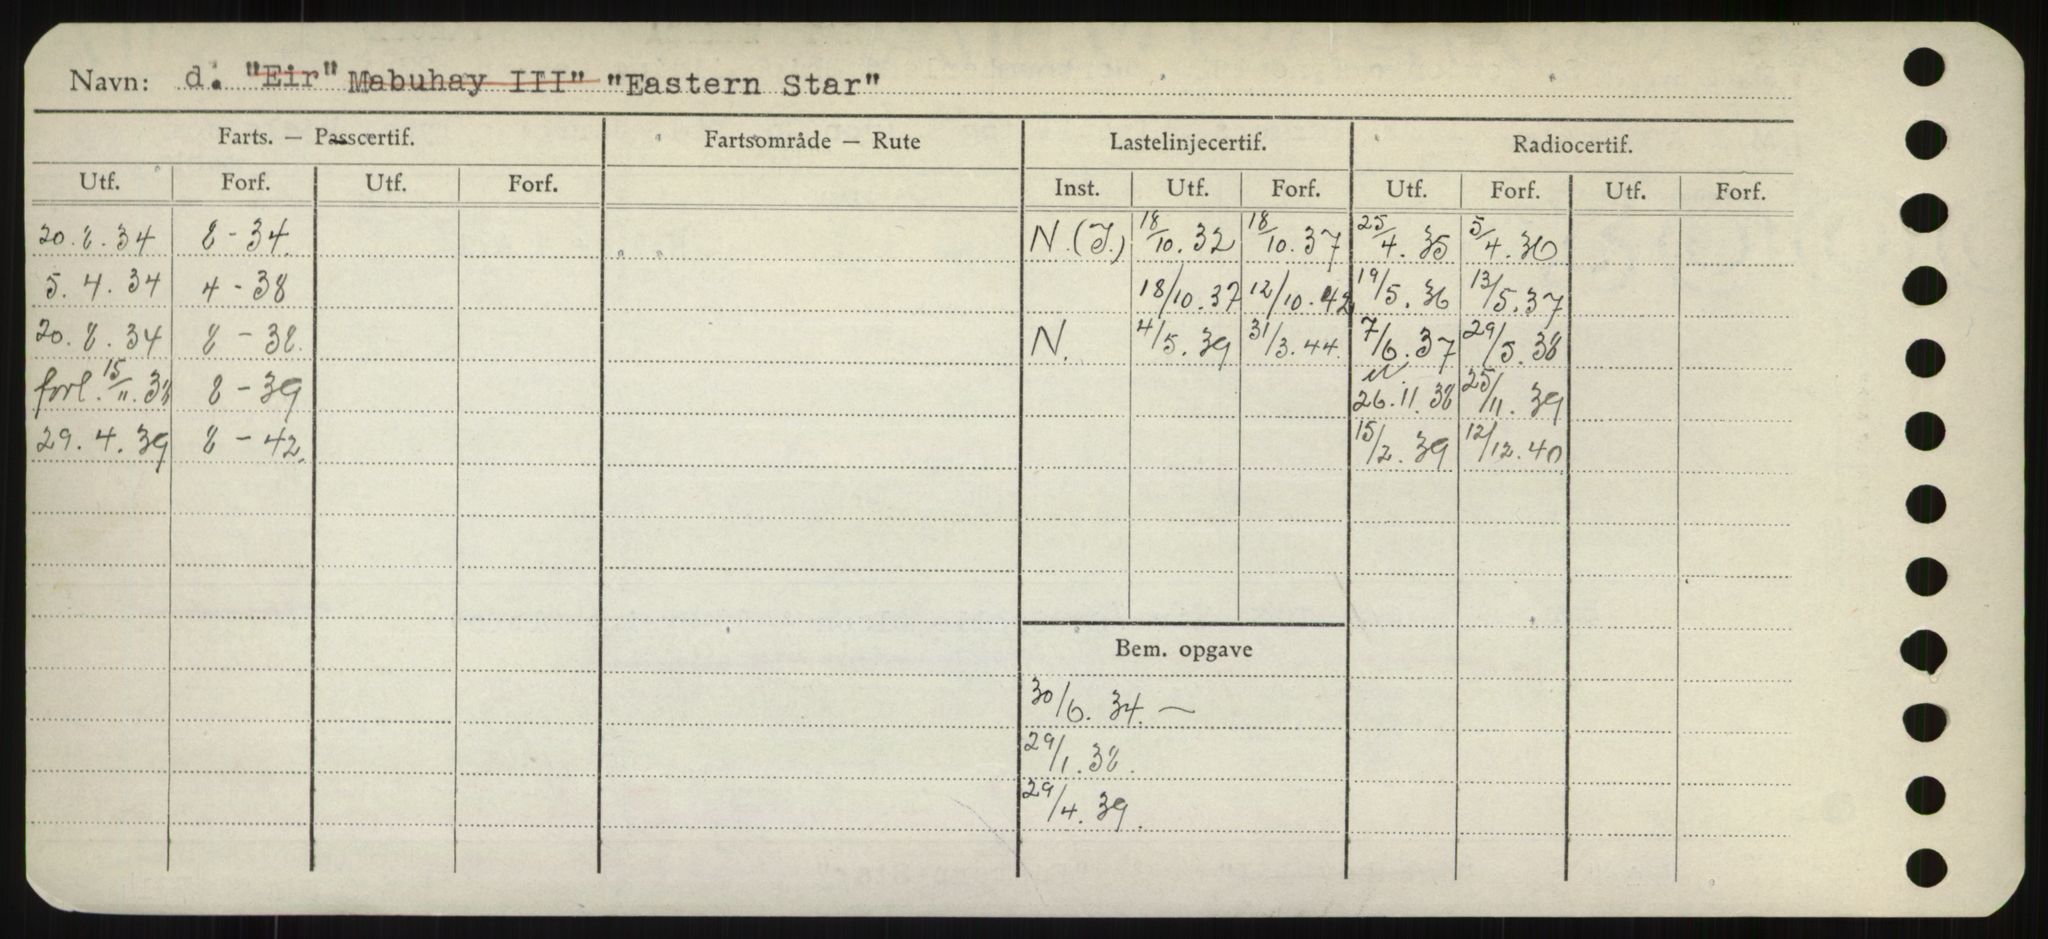 Navn: d. "Eir" Mabuhay III" "Eastern Star"
Farts. — Passcertif. Fartsområde — Rute Lastelinjecertif. Radiocertif.
Utf. Forf. Utf. Forf. Inst. Utf. Forf. Utf. Forf. Utf. Forf.
20.8.34 8-34 N.(I.) 18/10.32 18/10.37 25/4.35 5/4.36
5.4.34 4-38 18/10.37 12/10.42 19/5.36 13/5.37
20.8.34 8-38. N. 4/5.39 31/3.44. 7/6.37 29/5.38
forl. 15/11.38 8-39 26.11.38 25/11.39
29.4.39 8-42. 15/2.39 12/12.40
Bem. opgave
30/6.34. —
29/1.38.
29/4.39.